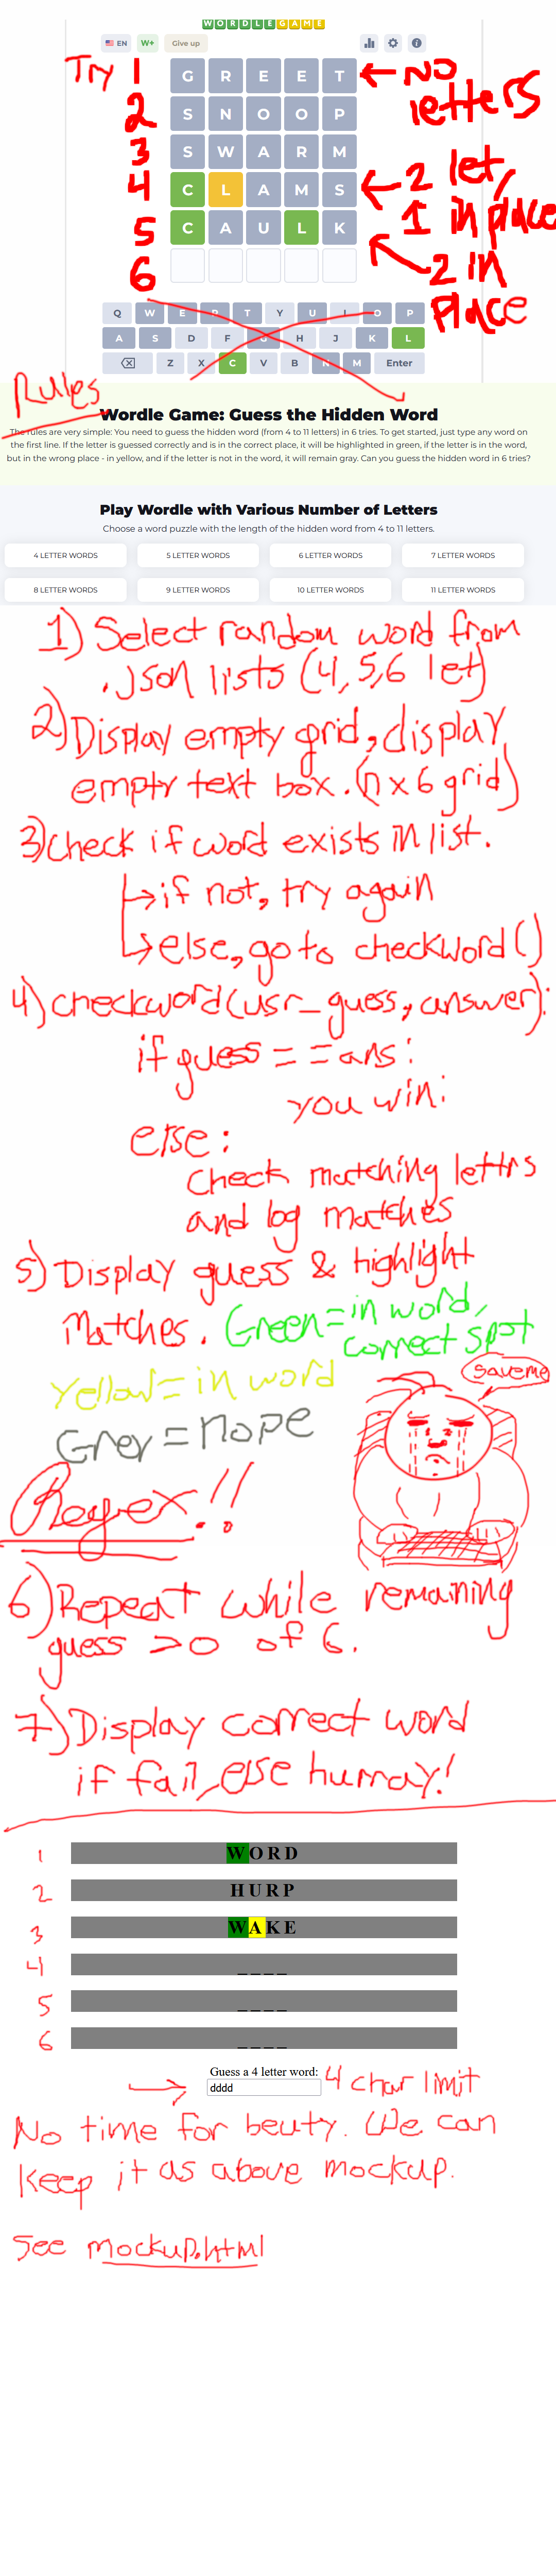 WORDLEGAME
EN W+ Give up
Try 1 GREET ← NO
letters
2 SNOOP
3 SWARM
4 CLAMS ← 2 let,
1 in place
5 CAULK
2 in
place
6
Q W E R T Y U I O P
A S D F G H J K L
Z X C V B N M Enter
Rules
Wordle Game: Guess the Hidden Word
The rules are very simple: You need to guess the hidden word (from 4 to 11 letters) in 6 tries. To get started, just type any word on
the first line. If the letter is guessed correctly and is in the correct place, it will be highlighted in green, if the letter is in the word,
but in the wrong place - in yellow, and if the letter is not in the word, it will remain gray. Can you guess the hidden word in 6 tries?
Play Wordle with Various Number of Letters
Choose a word puzzle with the length of the hidden word from 4 to 11 letters.
4 LETTER WORDS 5 LETTER WORDS 6 LETTER WORDS 7 LETTER WORDS
8 LETTER WORDS 9 LETTER WORDS 10 LETTER WORDS 11 LETTER WORDS
1) Select random word from
.json lists (4,5,6 let)
2) Display empty grid, display
empty text box. (n x 6 grid)
3) check if word exists in list.
↳ if not, try again
↳ else, go to checkword()
4) checkword(usr_guess, answer):
if guess == ans:
you win!
else:
check matching lettrs
and log matches
5) Display guess & highlight
matches. Green = in word,
correct spot
Yellow = in word
saveme
Grey = nope
Regex!!
6) Repeat while remaining
guess >0 of 6.
7) Display correct word
if fail, else hurray!
1 WORD
2 HURP
3 WAKE
4 _ _ _ _
5 _ _ _ _
6 _ _ _ _
Guess a 4 letter word:
→ dddd 4 char limit
No time for beuty. We can
keep it as above mockup.
See mockup.html